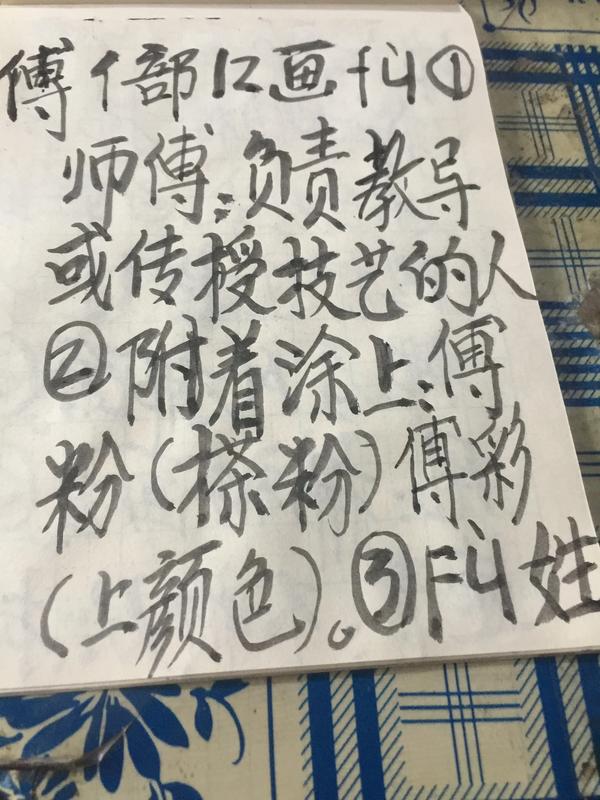 傅亻部12画fù①
师傅:负责教导
或传授技艺的人
②附着涂上:傅
粉(搽粉)傅彩
(上颜色)。③Fù姓